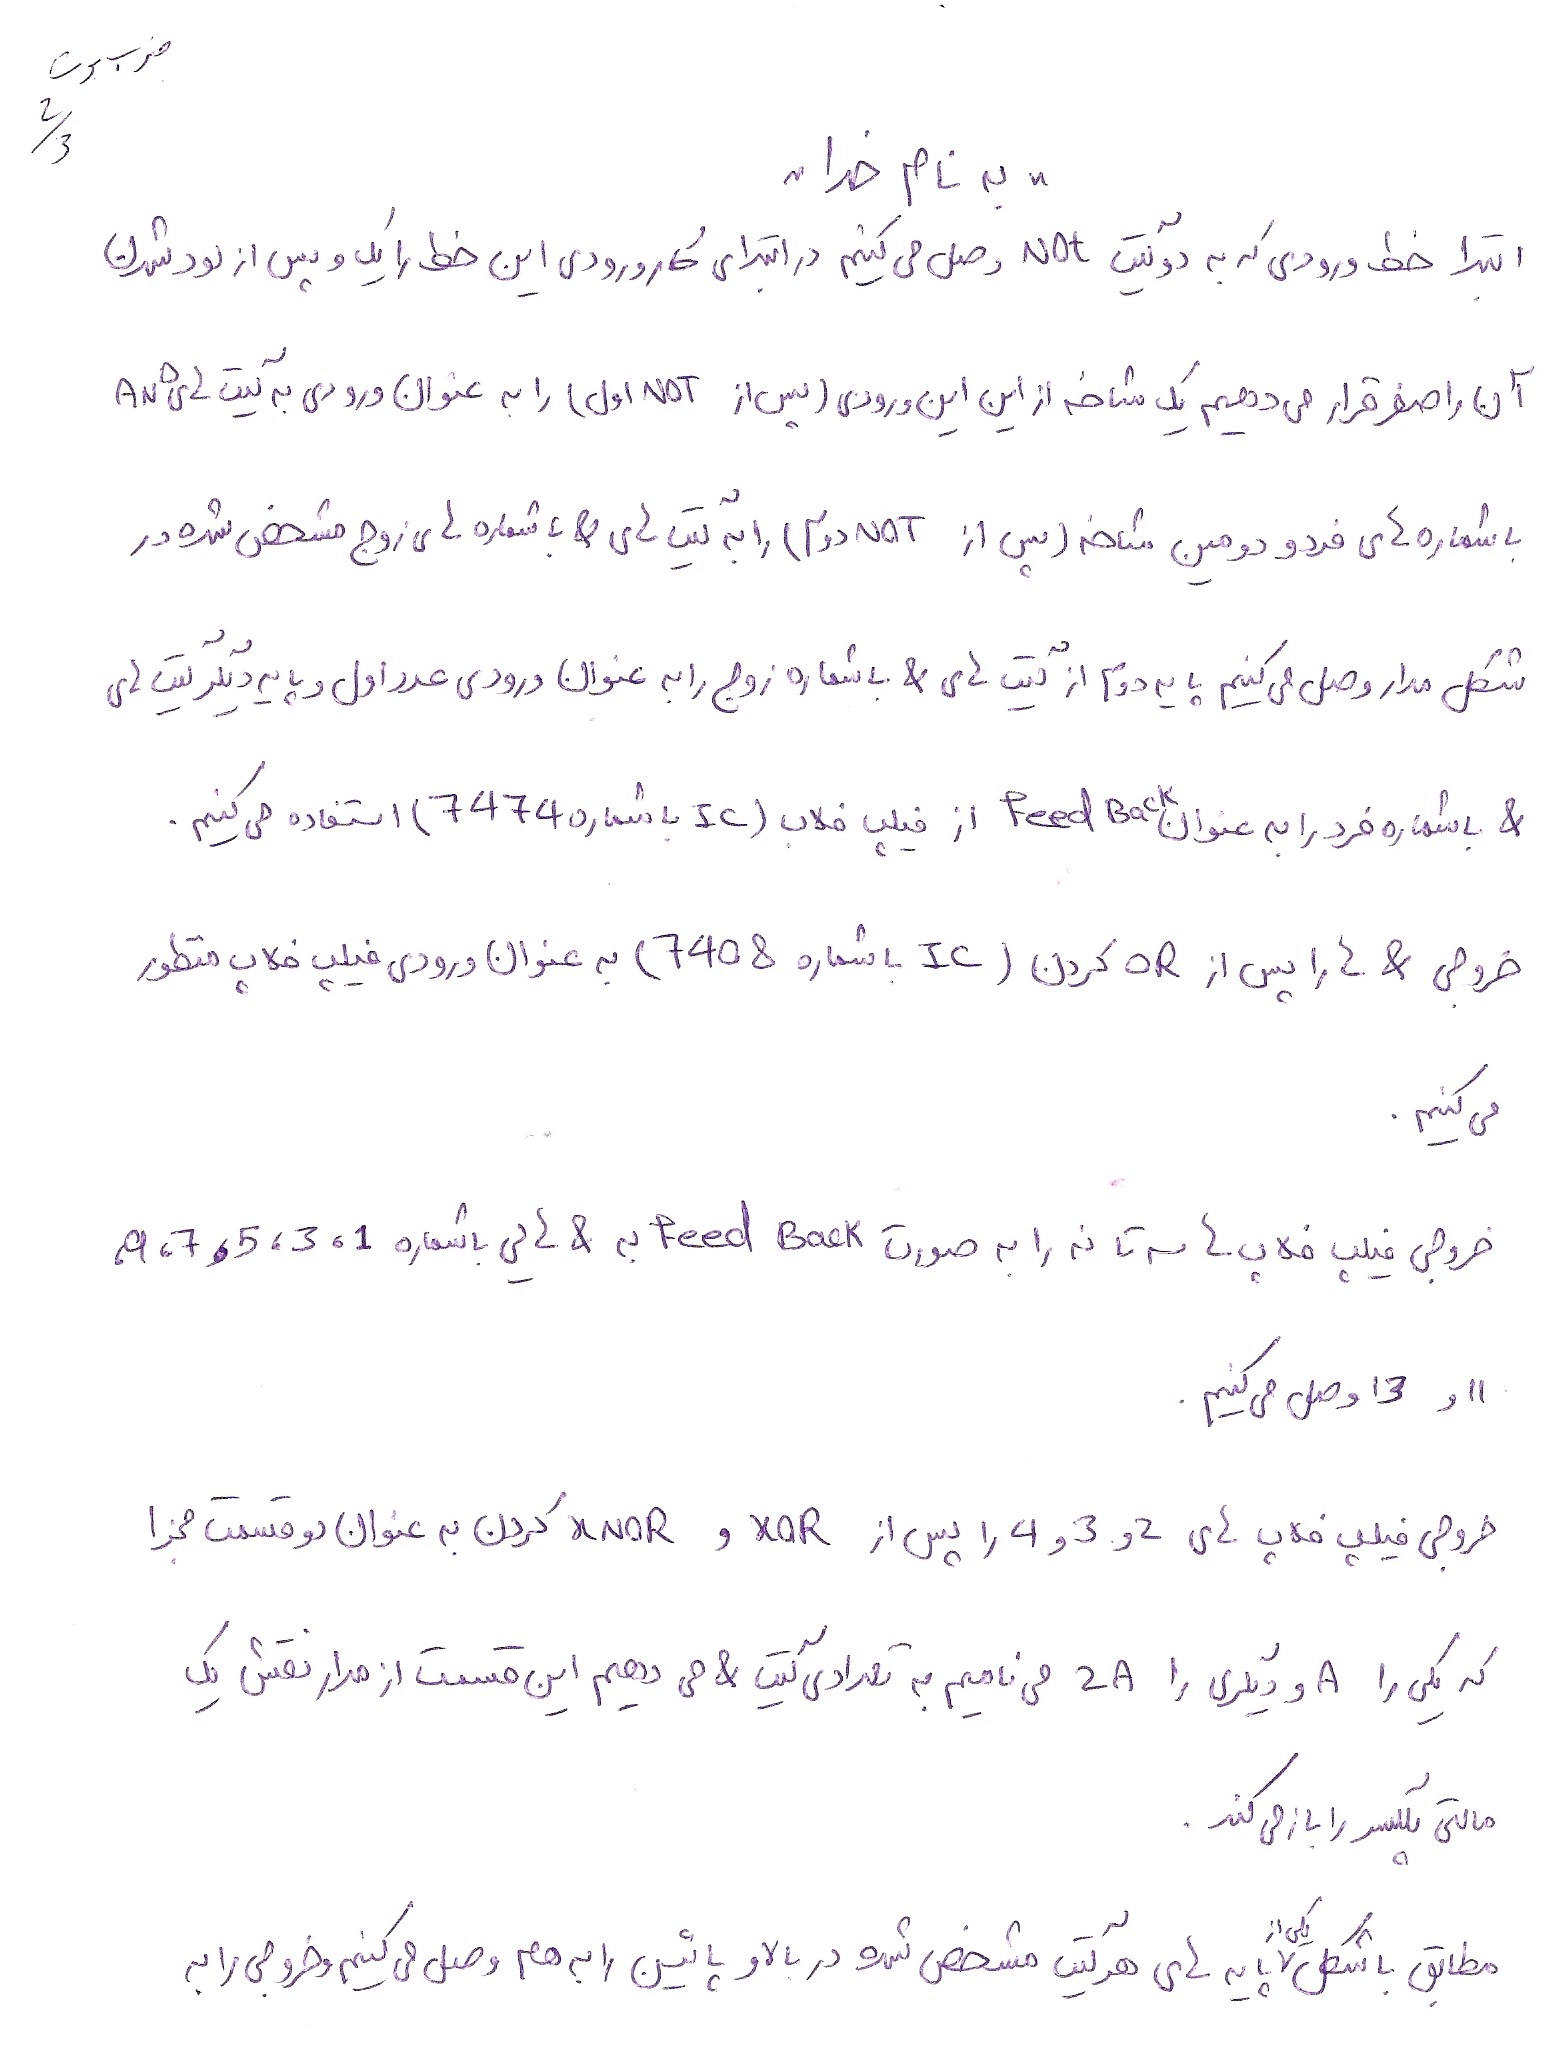 ضرب بوت
2/3
" به نام خدا "
ابتدا خط ورودی که به دو گیت NOt وصل می کنیم در ابتدای کار ورودی این خط را یک و پس از لود شدن
آن را صفر قرار می دهیم یک شاخه از این این ورودی (پس از NOT اول) را به عنوان ورودی به گیت های AND
با شماره های فرد و دومین شاخه (پس از NOT دوم) را به گیت های & با شماره های زوج مشخص شده در
شکل مدار وصل می کنیم پایه دوم از گیت های & با شماره زوج را به عنوان ورودی عدد اول و پایه دیگر گیت های
& با شماره فرد را به عنوان Feed Back از فیلیپ فلاپ (IC با شماره 7474) استفاده می کنیم .
خروجی & ها را پس از OR کردن (IC با شماره 7408) به عنوان ورودی فیلیپ فلاپ منظور
می کنیم .
خروجی فیلیپ فلاپ ها سه تا نه را به صورت Feed Back به & هایی با شماره 1، 3، 5، 7، 9،
11 و 13 وصل می کنیم .
خروجی فیلیپ فلاپ های 2 و 3 و 4 را پس از XOR و XNOR کردن به عنوان دو قسمت مجزا
که یکی را A و دیگری را 2A می نامیم به تعدادی گیت & می دهیم این قسمت از مدار نقش یک
مالتی پلکسر را بازی می کند .
مطابق با شکل یکی از پایه های هر گیت مشخص شده در بالا و پائین را به هم وصل می کنیم و خروجی را به